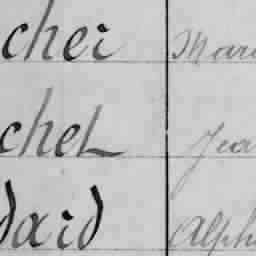 cher Mari
chet Jea
daid Alph